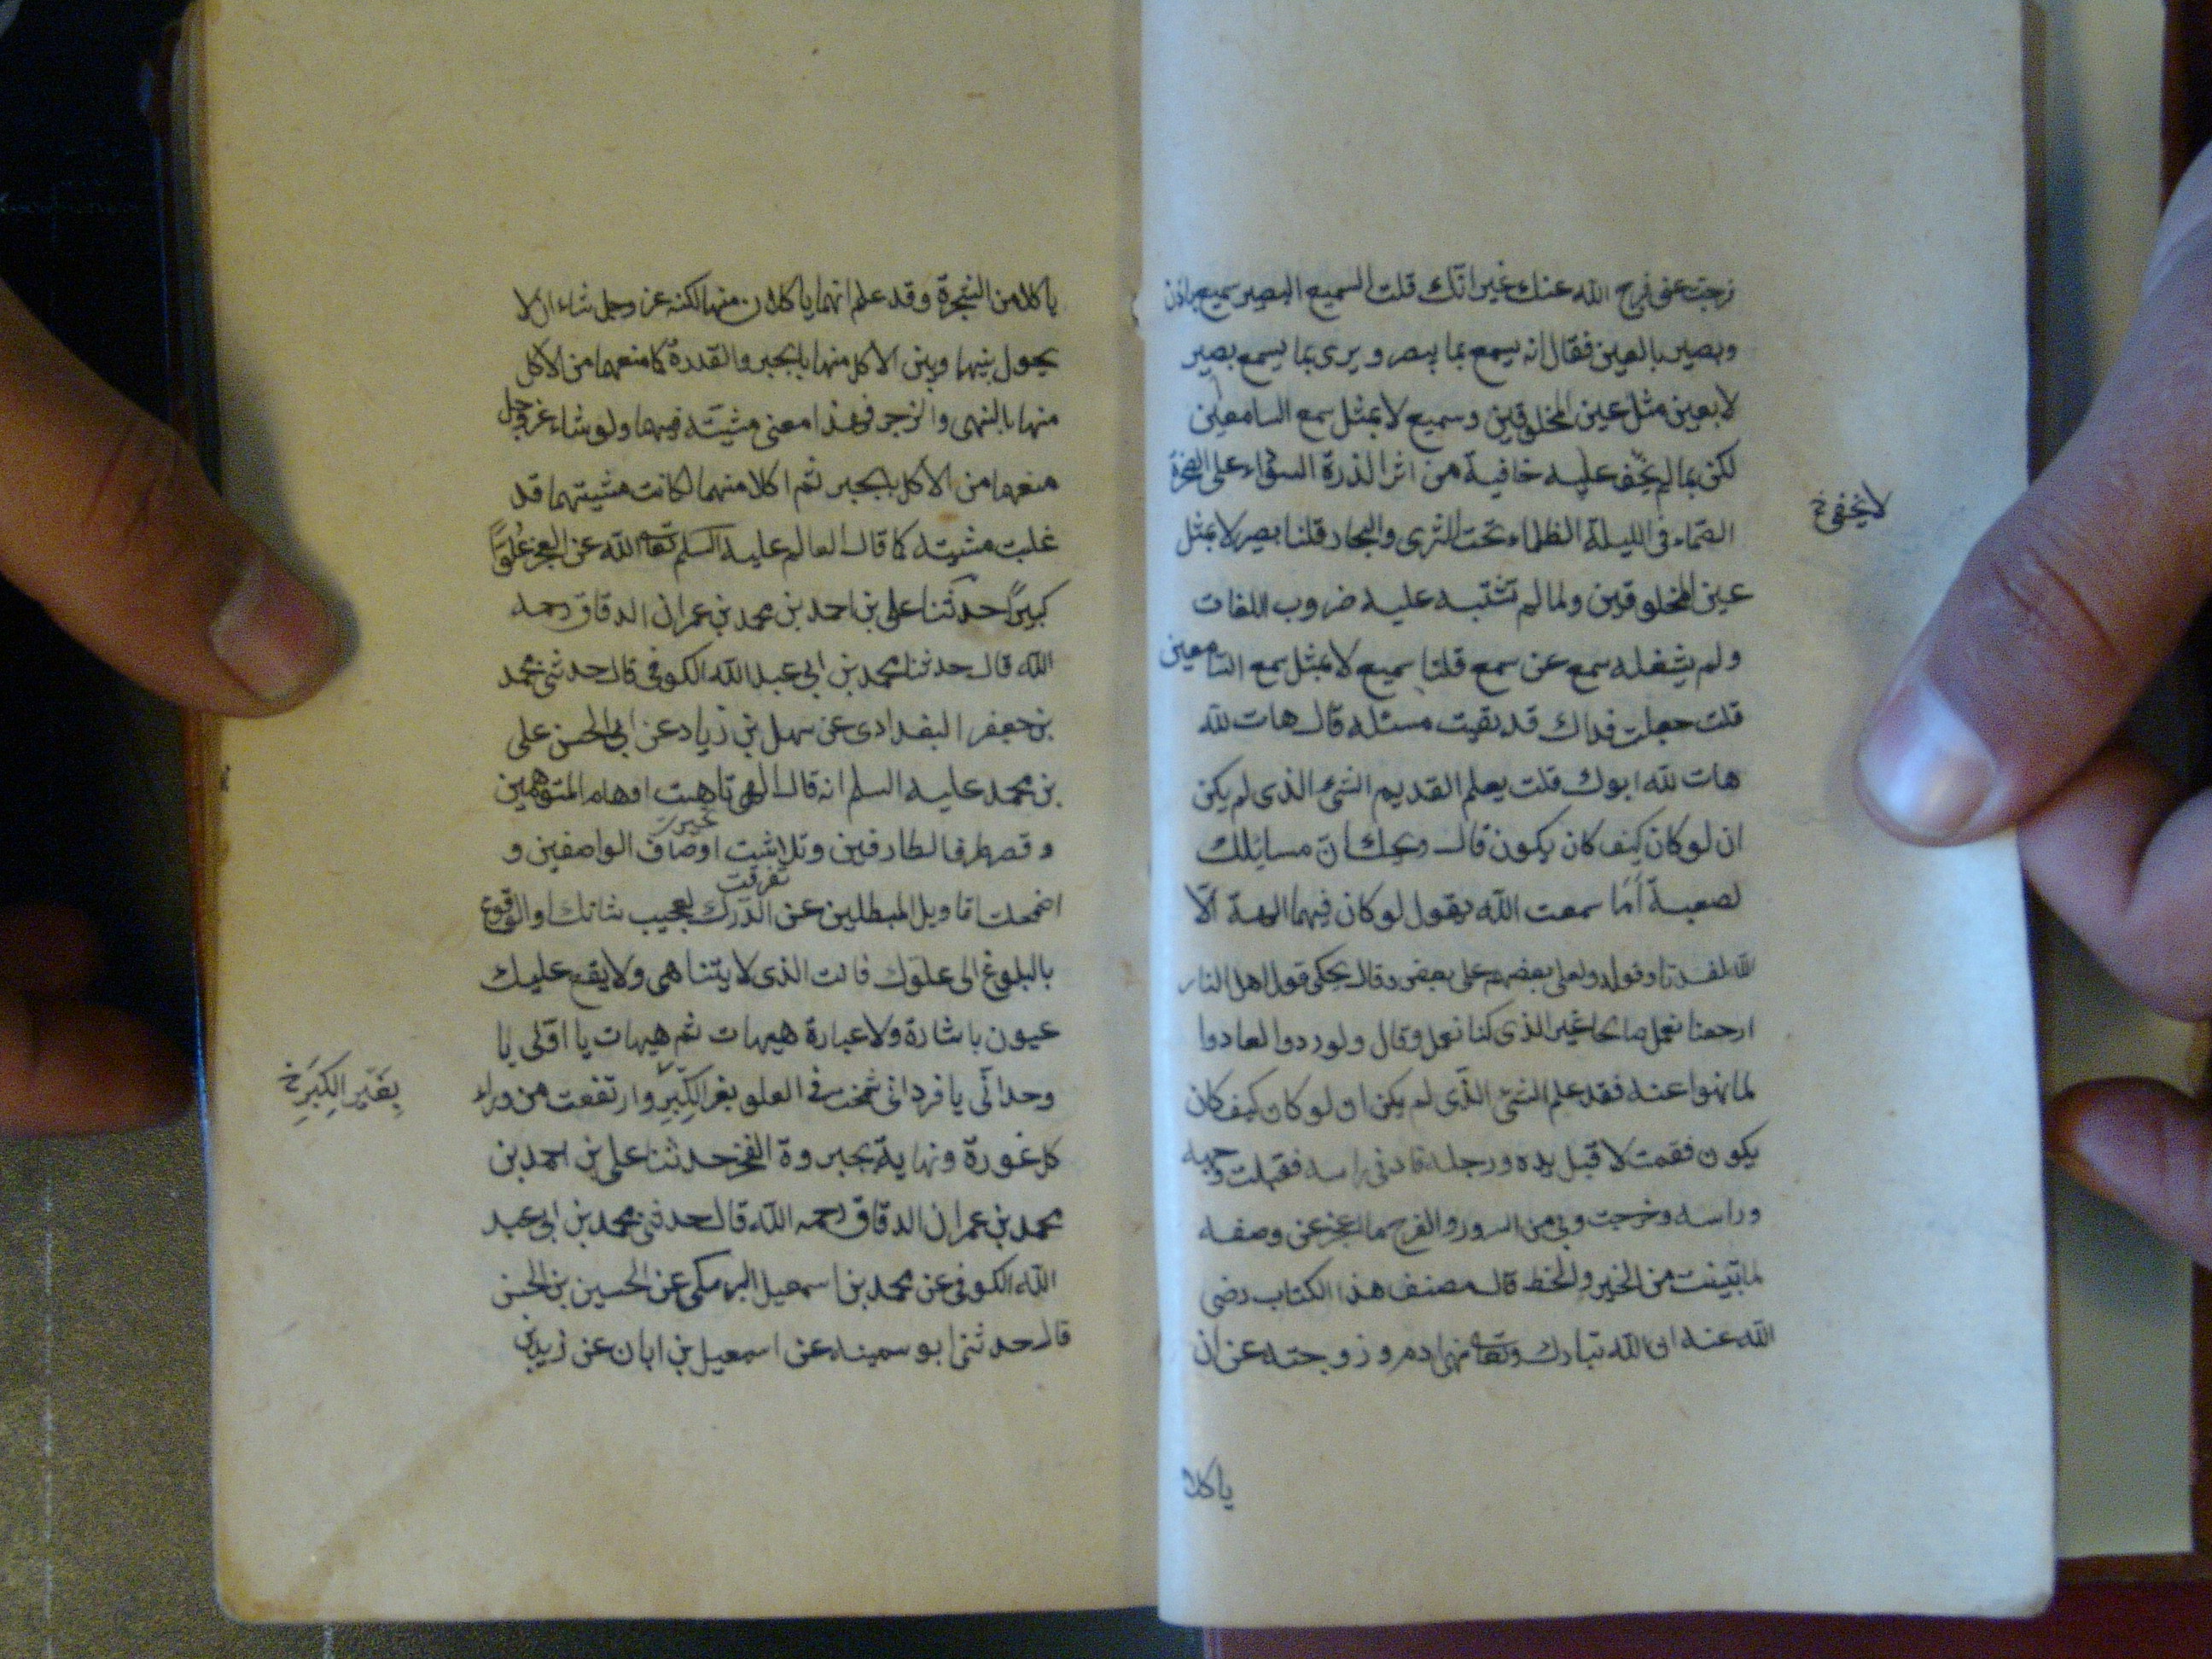 زجت عنى فرج الله عنك غير انّك قلت السميع البصير سميع باذن
وبصير بالعين فقال انه يسمع بما يبصر و يرى بما يسمع بصير
لا بعين مثل عين المخلوقين وسميع لا بمثل سمع السامعين
لكن بما لم يخف عليه خافية من اثر الذرة السوداء على الصخرة
لا يخفى خ
الصّماء فى الليلة الظلماء تحت الثرى والبحار قلنا بصير لا بمثل
عين المخلوقين ولما لم تشتبه عليه ضروب اللغات
ولم يشغله سمع عن سمع قلنا سميع لا بمثل سمع السامعين
قلت جعلت فداك قد بقيت مسئله قال هات لله
هات لله ابوك قلت يعلم القديم الشئ الذى لم يكن
ان لو كان كيف كان يكون قال ويحك انّ مسايلك
لصعبة أمَا سمعت الله يقول لو كان فيهما الهة الّا
الله لفسدتا وقوله ولعلى بعضهم على بعض وقال يحكى قول اهل النار
ارجعنا نعمل صالحا غير الذى كنا نعمل وقال ولو ردوا لعادوا
لما نهوا عنه فقد علم الشئ الذى لم يكن ان لو كان كيف كان
يكون فقمت لا قبل يده ورجله فادنى راسه فقبلت وجهه
وراسه وخرجت وبى من السرور والفرح ما اعجز عن وصفه
لما تبينت من الخير والحظ قال مصنف هذا الكتاب رضى
الله عنه ان الله تبارك وتعا نهى ادم و زوجته عن ان
ياكلا
ياكلا من الشجرة وقد علم انهما ياكلان منها لكنه عز وجل شاء ان لا
يحول بينهما وبين الاكل منها بالجبر والقدرة كما منعهما من الاكل
منها بالنهى والزجر فهذا معنى مشيّته فيهما ولو شاء عز وجل
منعهما من الاكل بالجبر ثم اكلا منهما لكانت مشيتهما قد
غلبت مشيته كما قال العالم عليه السلم تعا الله عن العجز علوًّا
كبيرًا حدثنا على بن احمد بن محمد بن عمران الدقاق رحمه
الله قال حدثنا محمد بن ابى عبد الله الكوفى قال حدثنى محمد
بن جعفر البغدادى عن سهل بن زياد عن ابى الحسن على
بن محمد عليه السلم انه قال الهى تاهت اوهام المتوهمين
و قصر طرف الطارفين وتلاشت اوصاف الواصفين و
اضمحلت اقاويل المبطلين عن الدّرك لعجيب شانك او الوقوع
بالبلوغ الى علوّك فانت الذى لا يتناهى ولا يقع عليك
عيون باشارة ولا عبارة هيهات ثم هيهات يا اوّلى يا
وحدانّى يا فردانى شمخت فى العلو بعز الكِبَرِ وارتفعت من وراء
بِعَيّرِ الكِبَرِ خ
كل غورة ونهاية بجبروة الفخر حدثنا على بن احمد بن
محمد بن عمران الدقاق رحمه الله قال حدثنى محمد بن ابى عبد
الله الكوفى عن محمد بن اسمعيل البرمكى عن الحسين بن الحسن
قال حدثنى ابو سمينه عن اسمعيل بن ابان عن زيد بن